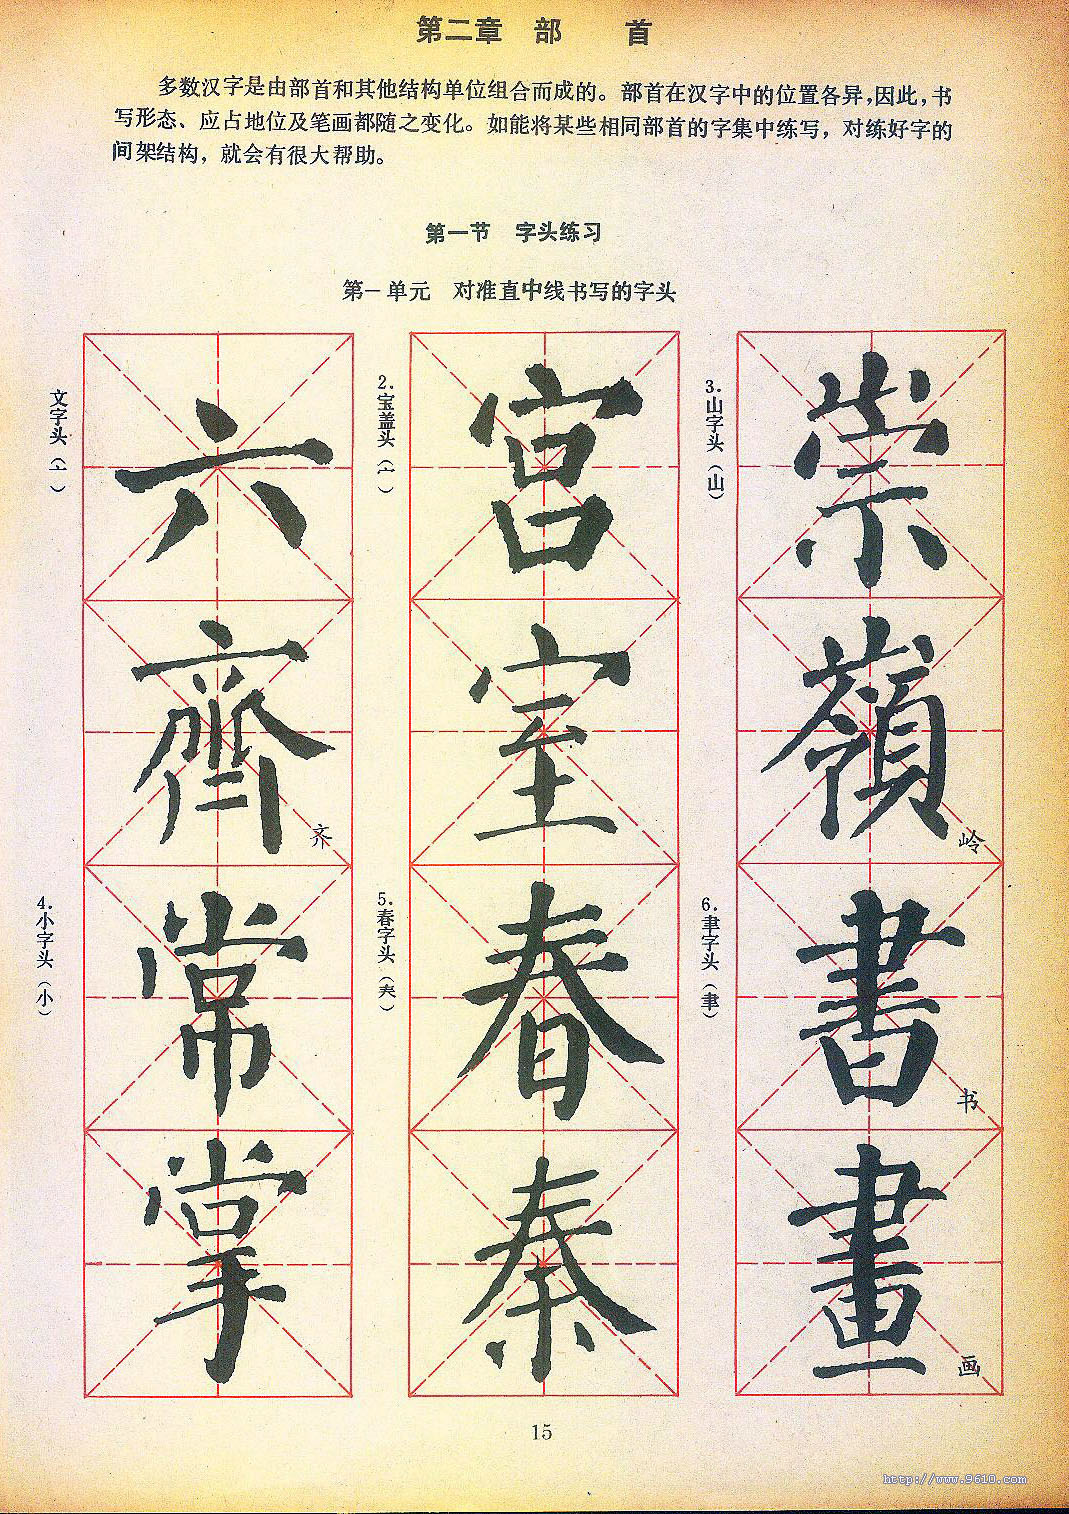 第二章 部 首
多数汉字是由部首和其他结构单位组合而成的。部首在汉字中的位置各异,因此,书
写形态、应占地位及笔画都随之变化。如能将某些相同部首的字集中练写，对练好字的
间架结构，就会有很大帮助。
第一节 字头练习
第一单元 对准直中线书写的字头
文字头（亠）
六
齊
齐
2.宝盖头（宀）
宫
室
3.山字头（山）
崇
嶺
岭
4.小字头（小）
常
掌
5.春字头（𡗗）
春
秦
6.聿字头（聿）
書
书
畫
画
15
http://www.9610.com